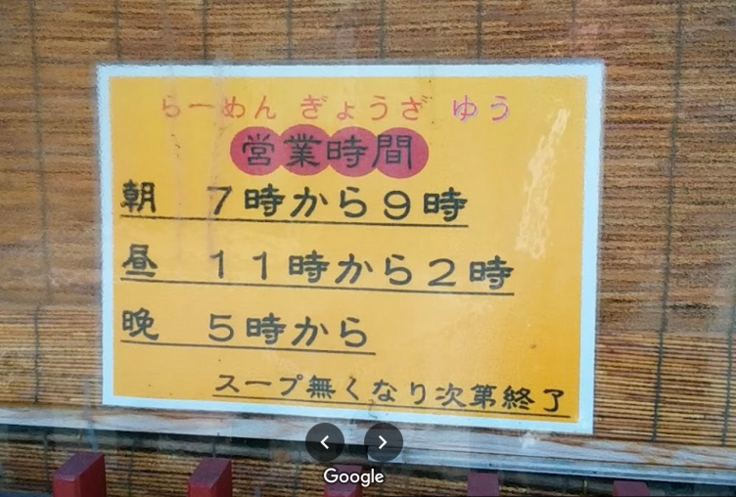 らーめん ぎょうざ ゆう
営業時間
朝 7時から9時
昼 11時から2時
晩 5時から
スープ無くなり次第終了
Google